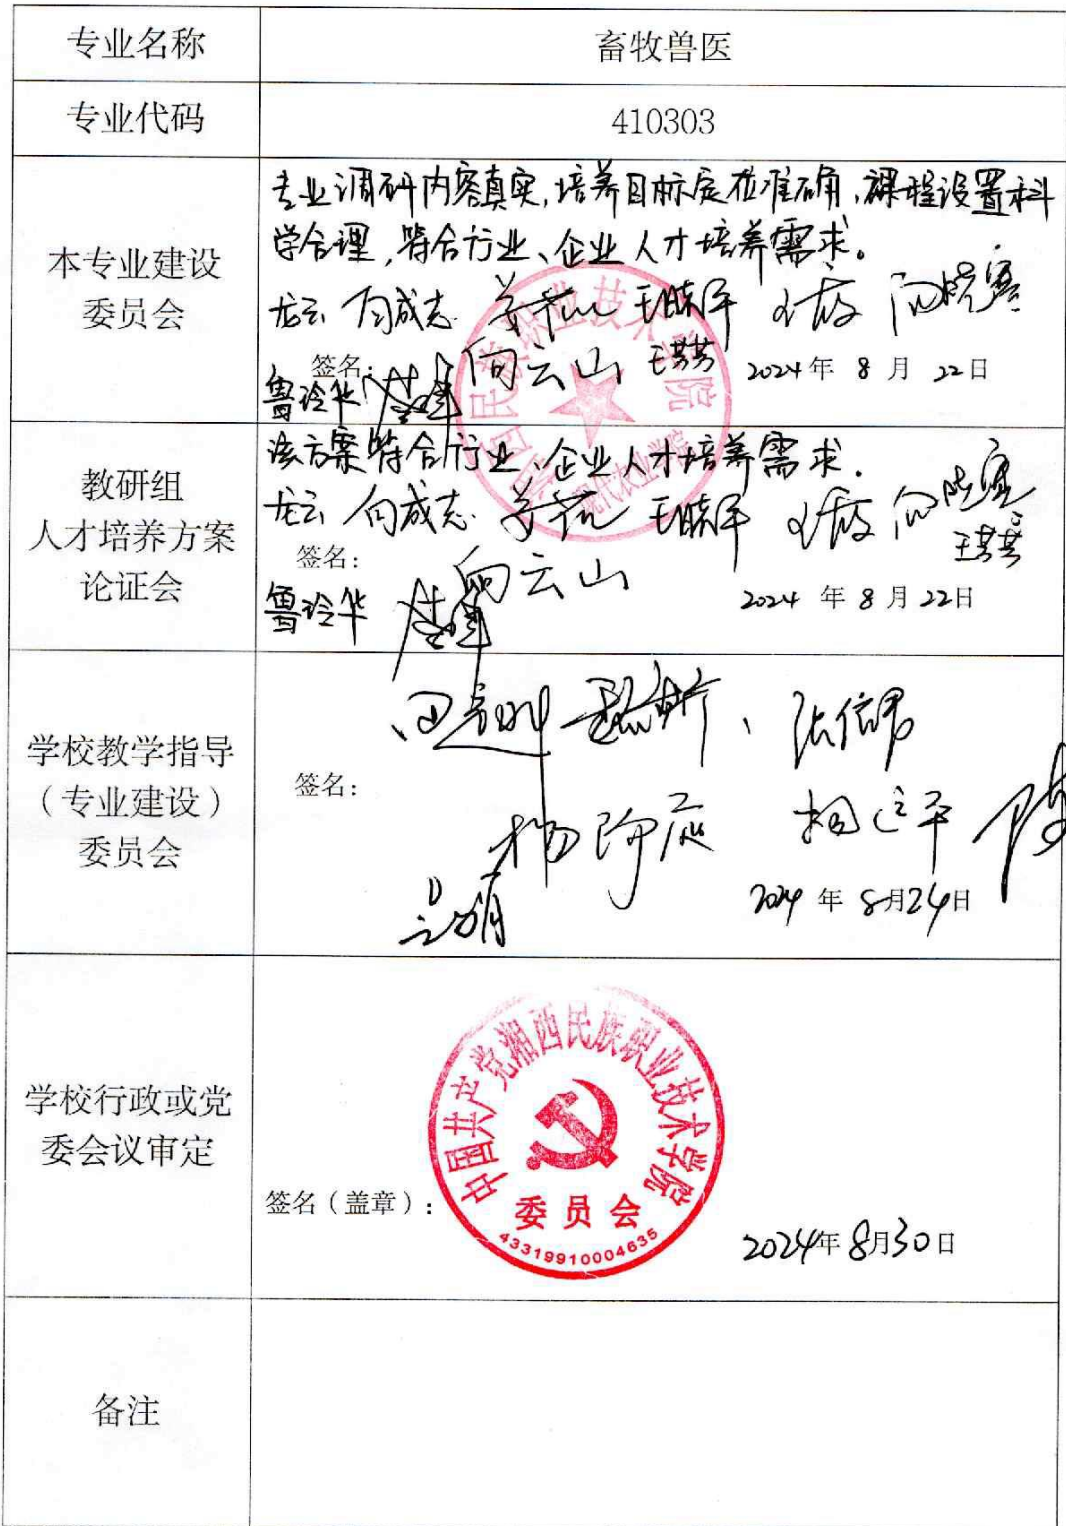 专业名称
畜牧兽医
专业代码
410303
本专业建设
委员会
专业调研内容真实,培养目标定位准确,课程设置科
学合理,符合行业、企业人才培养需求。
龙云 向成志 王晓平 向晓宽
签名:
向云山 王芸芸 2024年 8 月 22日
鲁玲华
教研组
人才培养方案
论证会
该方案符合行业、企业人才培养需求.
龙云 向成志 王晓平 向晓宽
王芸芸
签名:
向云山
鲁玲华
2024 年 8 月 22日
学校教学指导
(专业建设)
委员会
张信
签名:
杨
2024 年 8月24日
学校行政或党
委会议审定
中国共产党湘西民族职业技术学院
委员会
43319910004635
签名(盖章):
2024年8月30日
备注